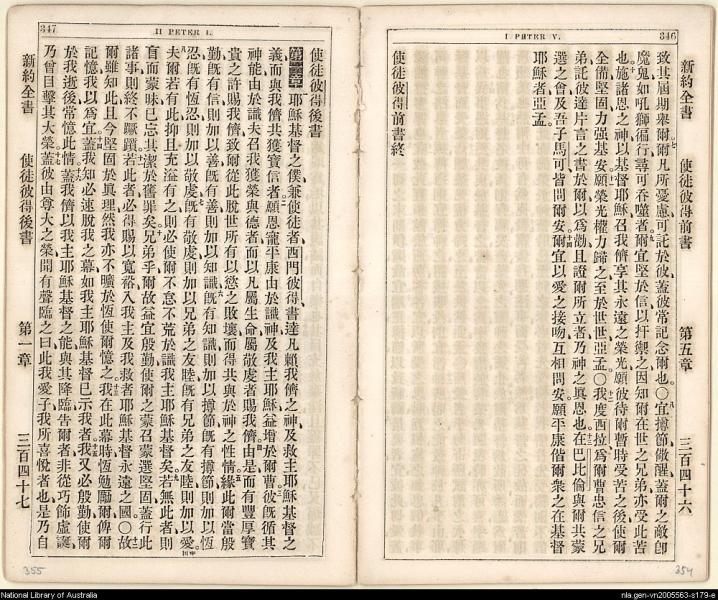 I PETER V.
346
新約全書 使徒彼得前書 第五章 三百四十六
致其屆期舉爾、爾凡所憂慮可託於彼、蓋彼常記念爾也、〇宜撙節儆醒、蓋爾之敵卽
魔鬼、如吼獅徧行、尋可吞噬者、爾宜堅於信以扞禦之、因知爾在世之兄弟、亦受此苦
也、施諸恩之神、以基督耶穌召我儕享其永遠之榮光、願彼待爾暫時受苦之後、使爾
全備堅固、力强基安、願榮光權力、歸之至於世世、亞孟、〇我度西拉爲爾曹忠信之兄
弟、託彼達片言之書於爾、以爲勸、且證爾所立者、乃神之眞恩也、在巴比倫與爾共蒙
選之會、及吾子馬可、皆問爾安、爾宜以愛之接吻、互相問安、願平康偕爾衆之在基督
耶穌者、亞孟、
使徒彼得前書終
II PETER I.
347
使徒彼得後書
第一章 耶穌基督之僕、兼使徒者、西門彼得、書達凡賴我儕之神、及救主耶穌基督之
義、而與我儕共獲寶信者、願恩寵平康、由於識神及我主耶穌、益增於爾曹、彼旣循其
神能、由於識夫召我獲榮與德者、而以凡屬生命敬虔者賜我儕、由是而有豐厚寶
貴之許賜我儕、致爾從此脫世所有以慾之敗壞、而得共與於神之性情、緣此爾當殷
勤、旣有信則加以善、旣有善則加以知識、旣有知識則加以撙節、旣有撙節則加以恆
忍、旣有恆忍則加以敬虔、旣有敬虔則加以兄弟之友睦、旣有兄弟之友睦則加以愛、
夫爾若有此抑且充溢有之、則必使爾不怠不荒於識我主耶穌基督矣、若無此者、則
盲而蒙昧、已忘其潔於舊罪矣、兄弟乎、爾故益宜殷勤、使爾之蒙召蒙選堅固、蓋行此
諸事、則終不蹶躓、若此者、必得賜以寬裕入我主及我救者耶穌基督永遠之國、〇故
爾雖知此、且今堅固於眞理、然我亦不曠於恆使爾憶之、我在此幕時恆勉勵爾、俾爾
記憶、我以爲宜、蓋我知必速脫我之幕、如我主耶穌基督已示我者、我又必殷勤使爾
於我逝後常憶此情、蓋我儕以我主耶穌基督之能與其降臨告爾者、非從巧飾虛誕、
乃曾目擊其大榮、蓋彼由尊大之榮、聞有聲臨之曰、此我愛子、我所喜悅者也、是乃自
新約全書 使徒彼得後書 第一章 三百四十七
354
355
National Library of Australia
nla.gen-vn2005563-s179-e